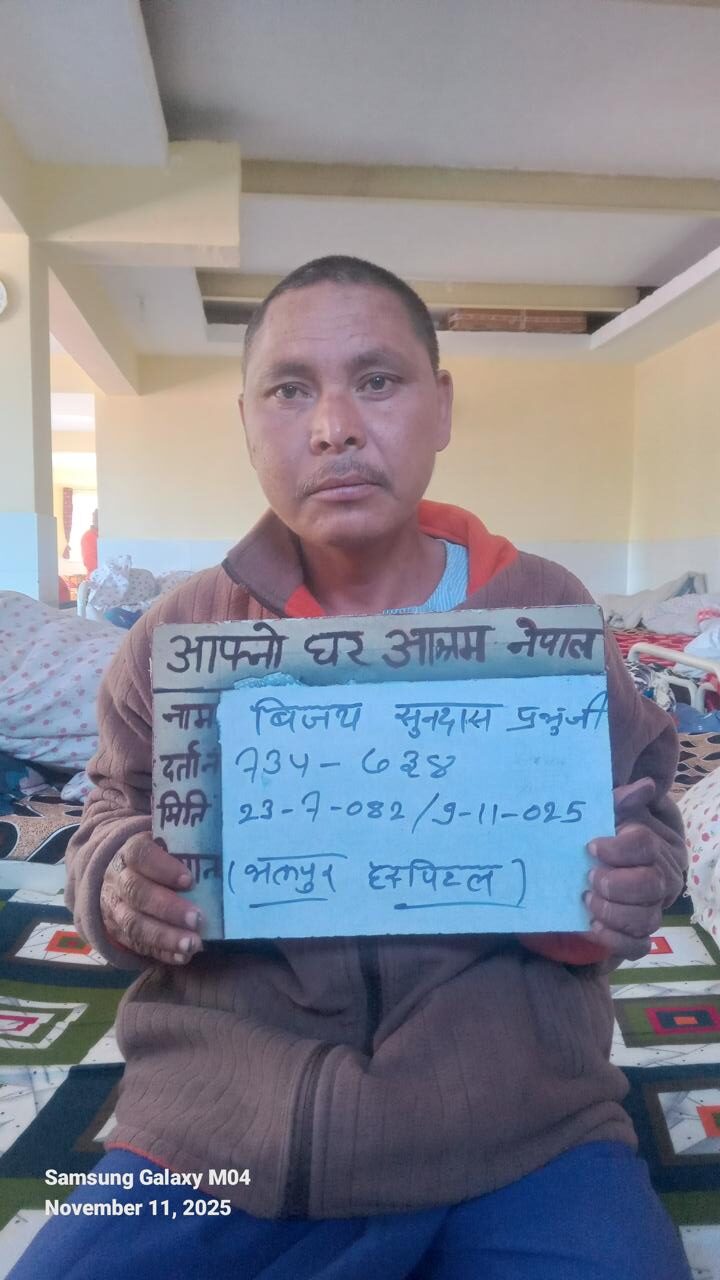 आफ्नो घर आश्रम नेपाल
नाम बिजय सुनदास प्रभुजी
दर्ता नं 734 - ७३४
मिति 23-7-082 / 9-11-025
(भक्तपुर हस्पिटल)
Samsung Galaxy M04
November 11, 2025